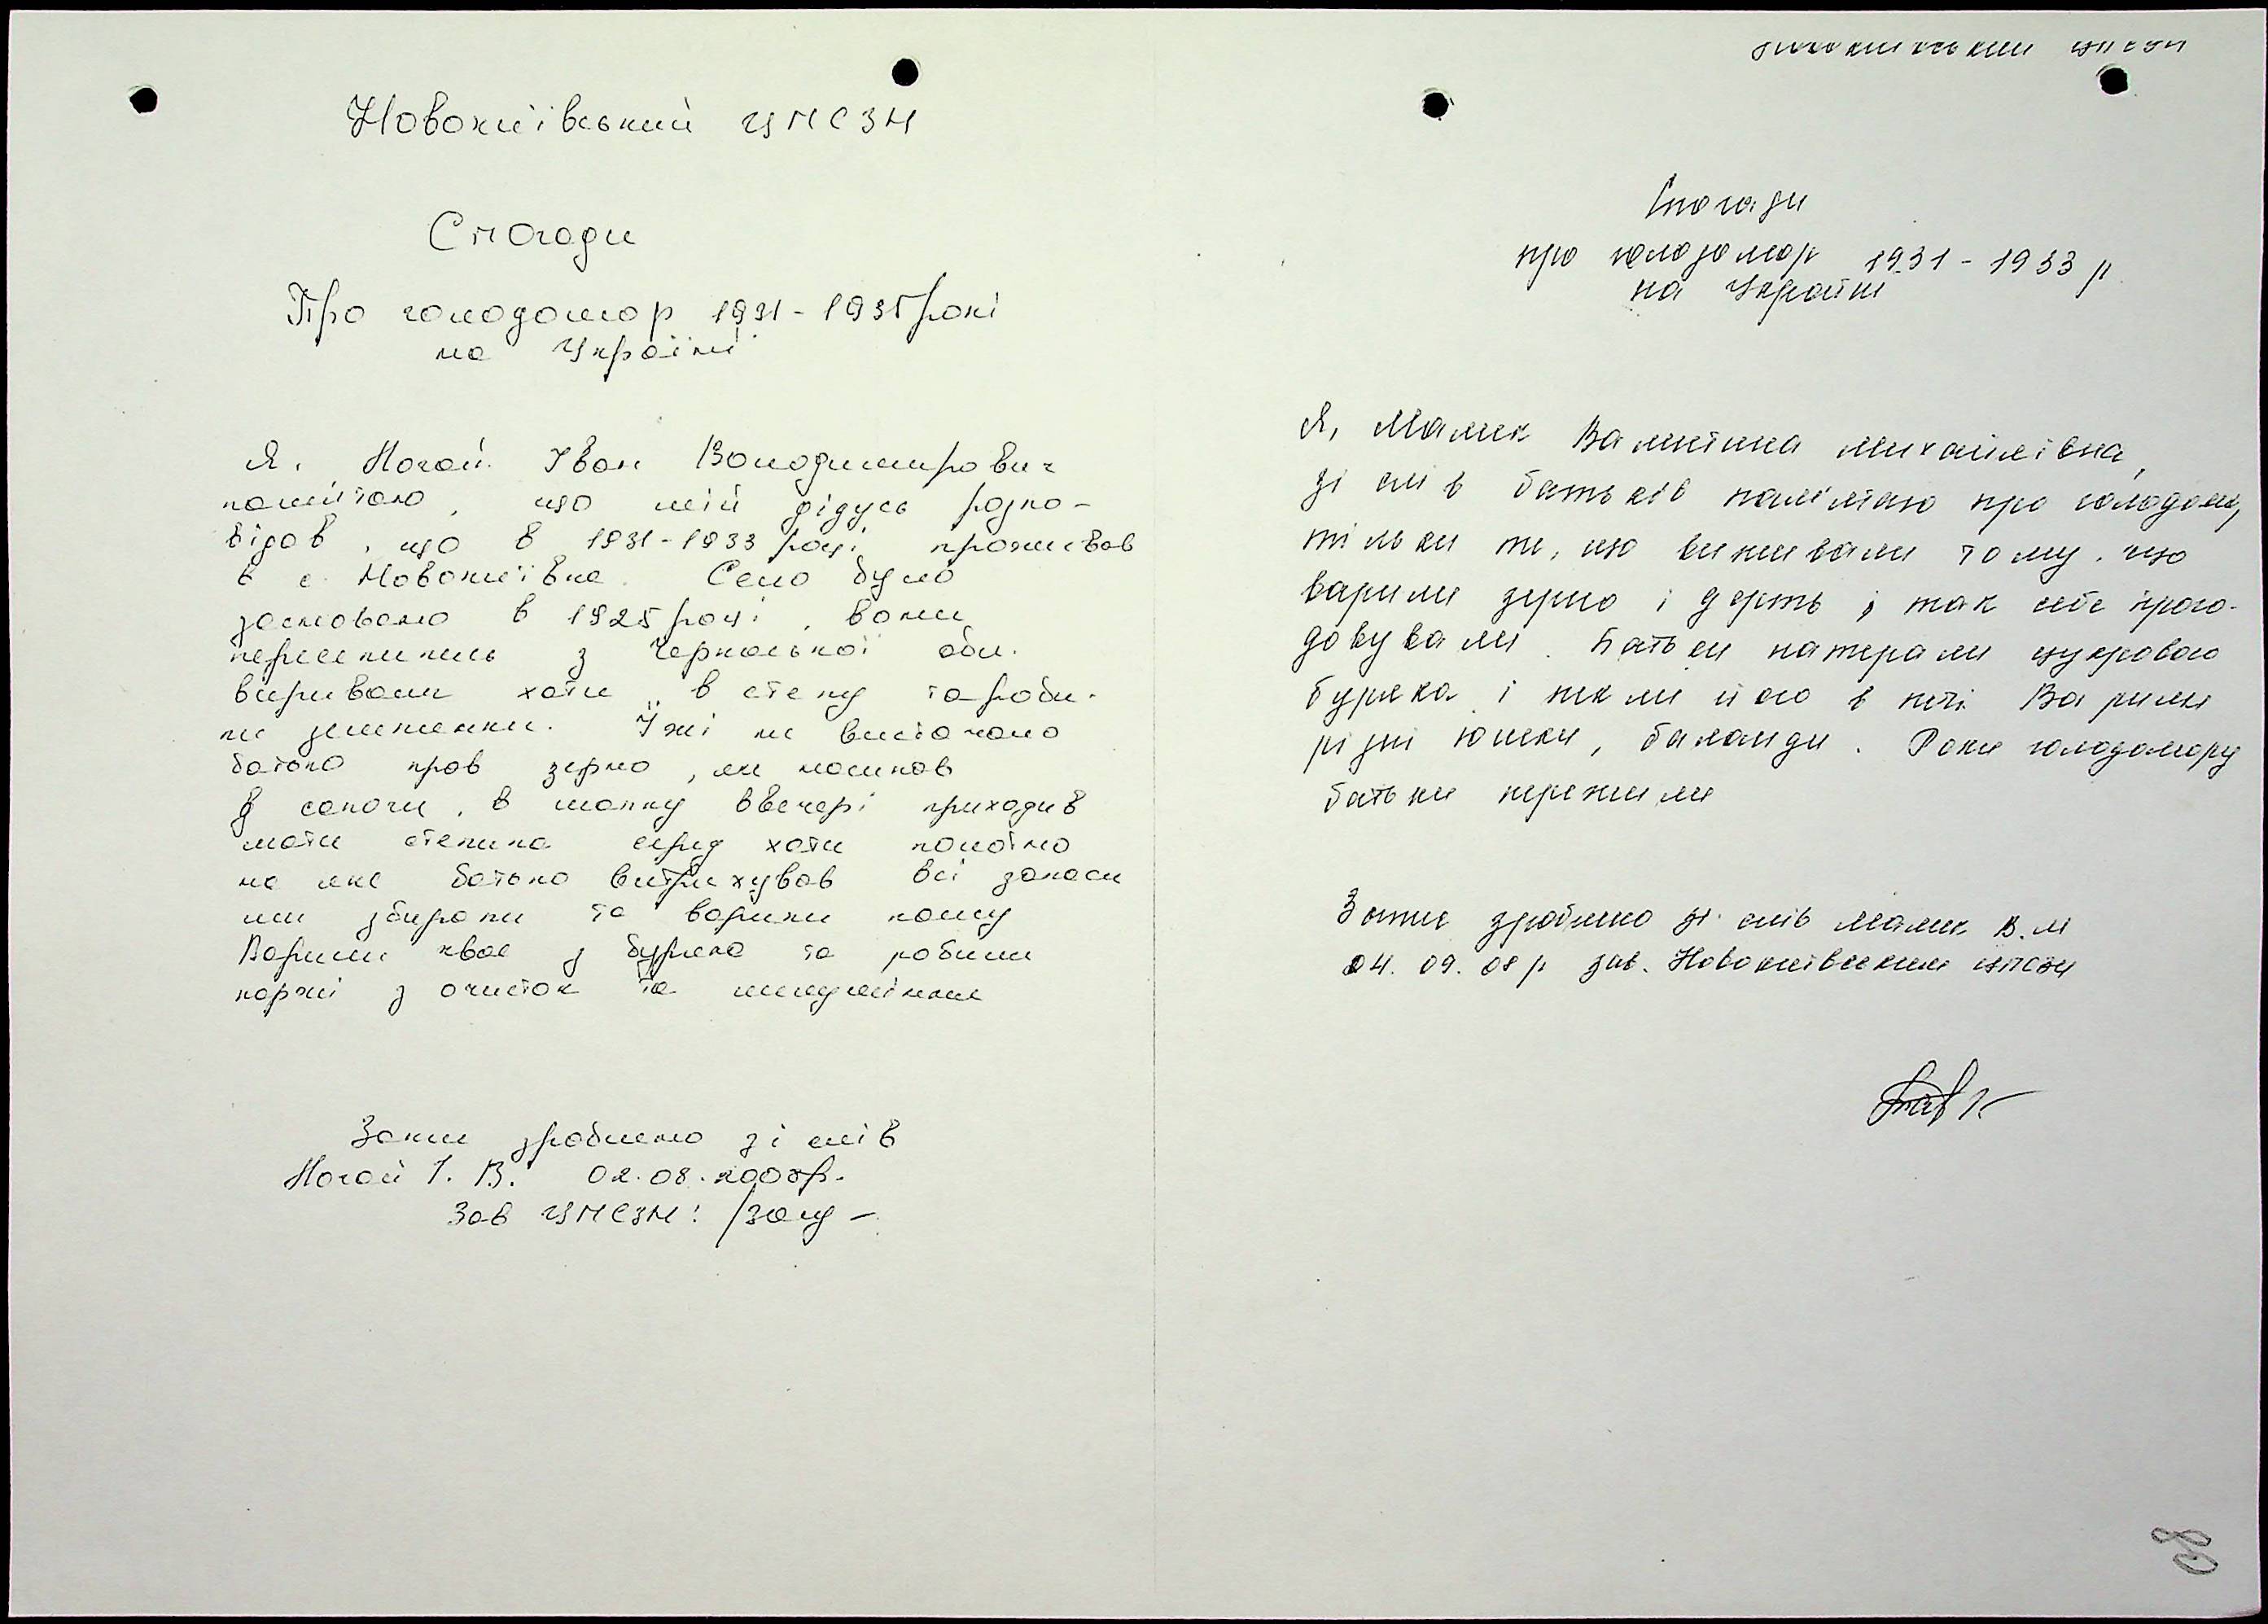 Новокиївський ЦПСЗН
Спогади
Про голодомор 1931-1935 рокі
на Україні
Я, Ногай Іван Володимирович
памʼятаю, що мій дідусь розпо-
відав, що в 1931-1933 році проживав
в с. Новокиївка. Село було
засновано в 1925 році, вони
переселились з Черкаської обл.
виривали хати в степу та роби-
ли землянки. Їжі не вистачало
батько крав зерно, яке насипав
в сапоги, в шапку ввечері приходив
мати стелила серед хати полотно
на яке батько витрихував всі запаси
ми збирали та варили кашу
Варили квас з буряка та робили
коржі з очисток та лушпиння
Запис зроблено зі слів
Ногай І. В. 02.08.2008р.
Зав ЦПСЗН:
Спогади
про голодомор 1931-1933 р
на Україні
Я, Малик Валентина Михайлівна,
зі слів батьків памʼятаю про голодомор,
тільки те, що виживали тому, що
варили зерно і дерть, так себе прого-
довували. Батьки натерали цукрового
буряка і пекли його в печі. Варили
різні юшки, баланди. Роки голодомору
батьки пережили
Запис зроблено зі слів Малик В.М
04.09.08 р зав. Новокиївським ЦПСЗН